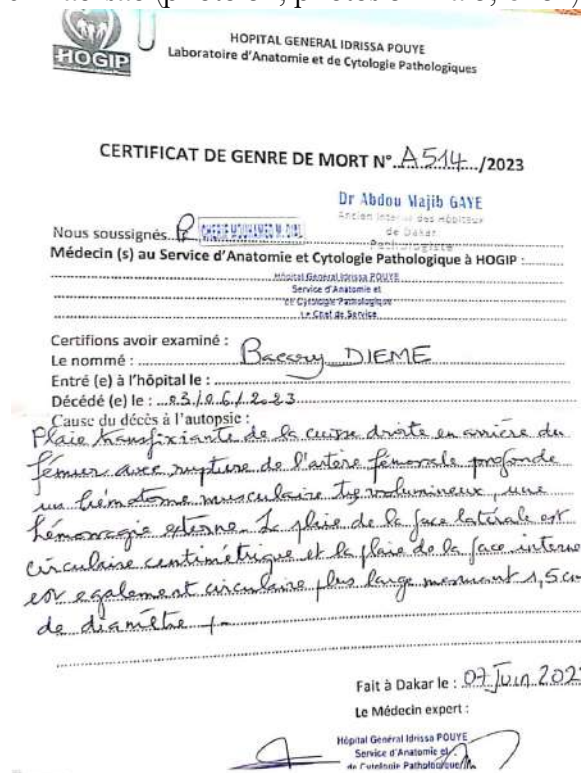 HOGIP
HOPITAL GENERAL IDRISSA POUYE
Laboratoire d'Anatomie et de Cytologie Pathologiques
CERTIFICAT DE GENRE DE MORT N° A514 /2023
Dr Abdou Majib GAYE
Ancien Interne des Hôpitaux
de Dakar
Pathologiste
Nous soussignés Pr CHERIF MOUHAMED M. DIAL
Médecin (s) au Service d'Anatomie et Cytologie Pathologique à HOGIP :
Hôpital Général Idrissa POUYE
Service d'Anatomie et
de Cytologie Pathologique
Le Chef de Service
Certifions avoir examiné :
Le nommé : Bacary DIEME
Entré (e) à l'hôpital le :
Décédé (e) le : 03/06/2023
Cause du décès à l'autopsie :
Plaie transfixiante de la cuisse droite en arrière du
fémur avec rupture de l'artère fémorale profonde
un hématome musculaire très volumineux, une
hémorragie externe. La plaie de la face latérale est
circulaire centimétrique et la plaie de la face interne
est egalement circulaire plus large mesurant 1,5 cm
de diamètre
Fait à Dakar le : 07 Juin 202
Le Médecin expert :
Hôpital Général Idrissa POUYE
Service d'Anatomie et
de Cytologie Pathologique